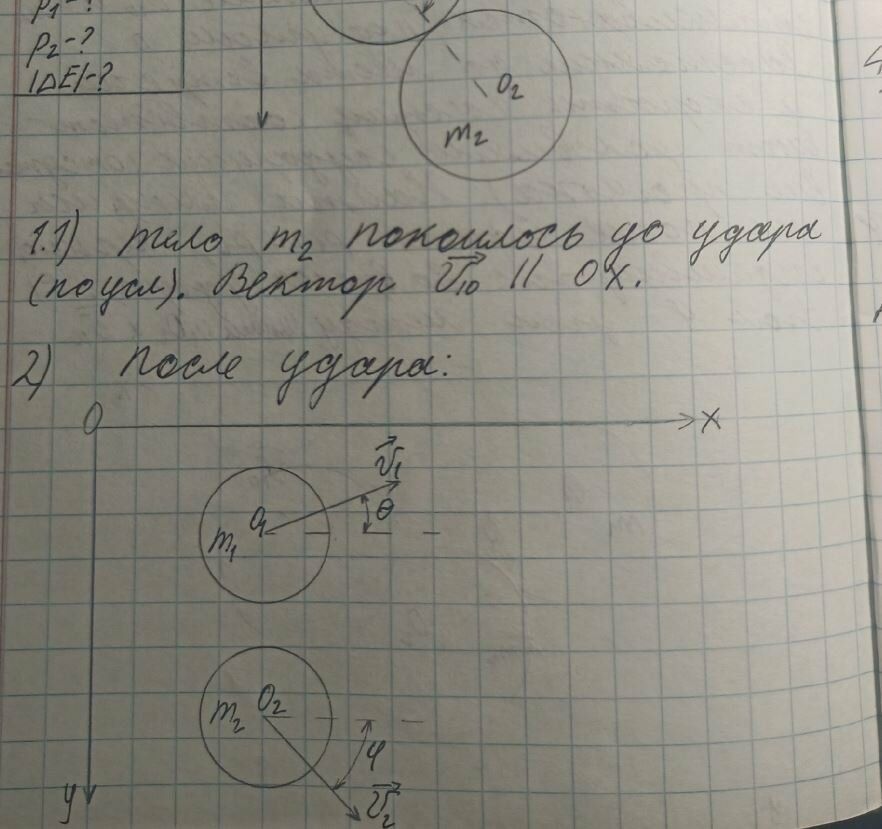 P₁-?
P₂-?
|ΔE|-?
O₂
m₂
1.1) тело m₂ покоилось до удара
(по усл). Вектор V⃗₁₀ || OX.
2) После удара:
O
X
V⃗₁
θ
O₁
m₁
m₂
O₂
φ
V⃗₂
y